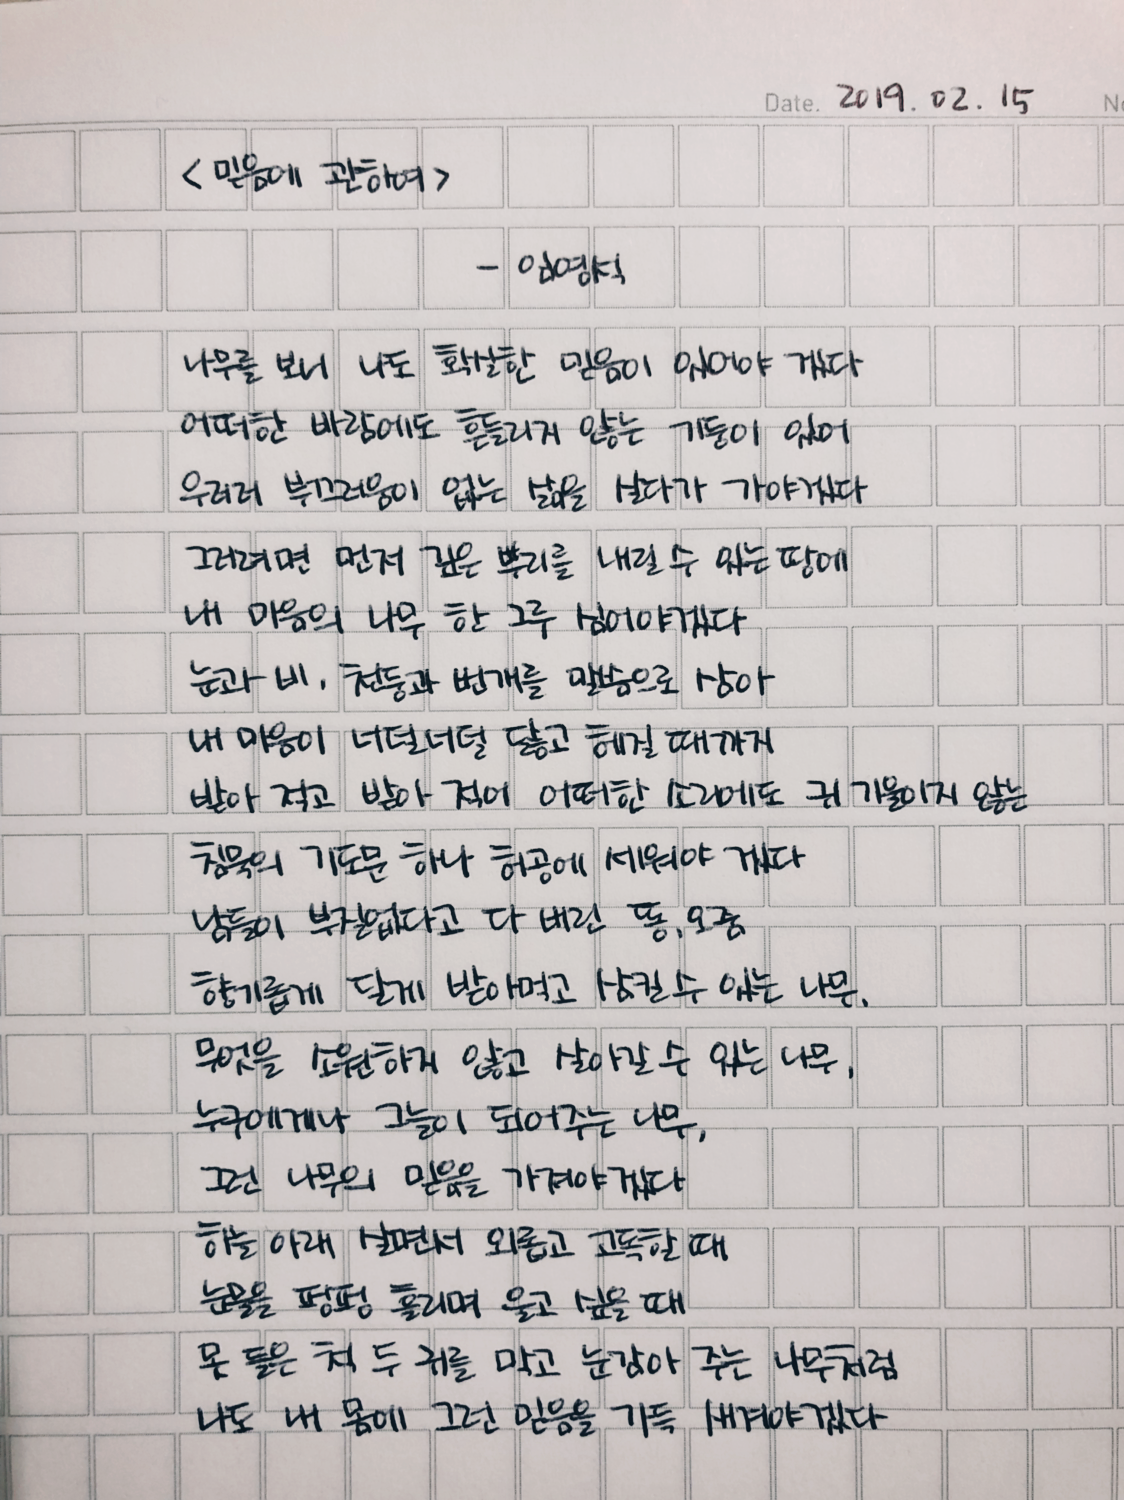 Date. 2019. 02. 15
<믿음에 관하여>
- 임영석
나무를 보니 나도 확실한 믿음이 있어야 겠다
어떠한 바람에도 흔들리지 않는 기둥이 있어
우러러 부끄러움이 없는 삶을 살다가 가야겠다
그러려면 먼저 깊은 뿌리를 내릴 수 있는 땅에
내 마음의 나무 한 그루 심어야겠다
눈과 비, 천둥과 번개를 말씀으로 삼아
내 마음이 너덜너덜 닳고 헤질 때까지
받아 적고 받아 적어 어떠한 소리에도 귀 기울이지 않는
침묵의 기도문 하나 허공에 세워야 겠다
남들이 부질없다고 다 버린 똥, 오줌
향기롭게 달게 받아먹고 삼킬 수 있는 나무,
무엇을 소원하지 않고 살아갈 수 있는 나무,
누구에게나 그늘이 되어주는 나무,
그런 나무의 믿음을 가져야겠다
하늘 아래 살면서 외롭고 고독할 때
눈물을 펑펑 흘리며 울고 싶을 때
못 들은 척 두 귀를 막고 눈감아 주는 나무처럼
나도 내 몸에 그런 믿음을 가득 새겨야겠다